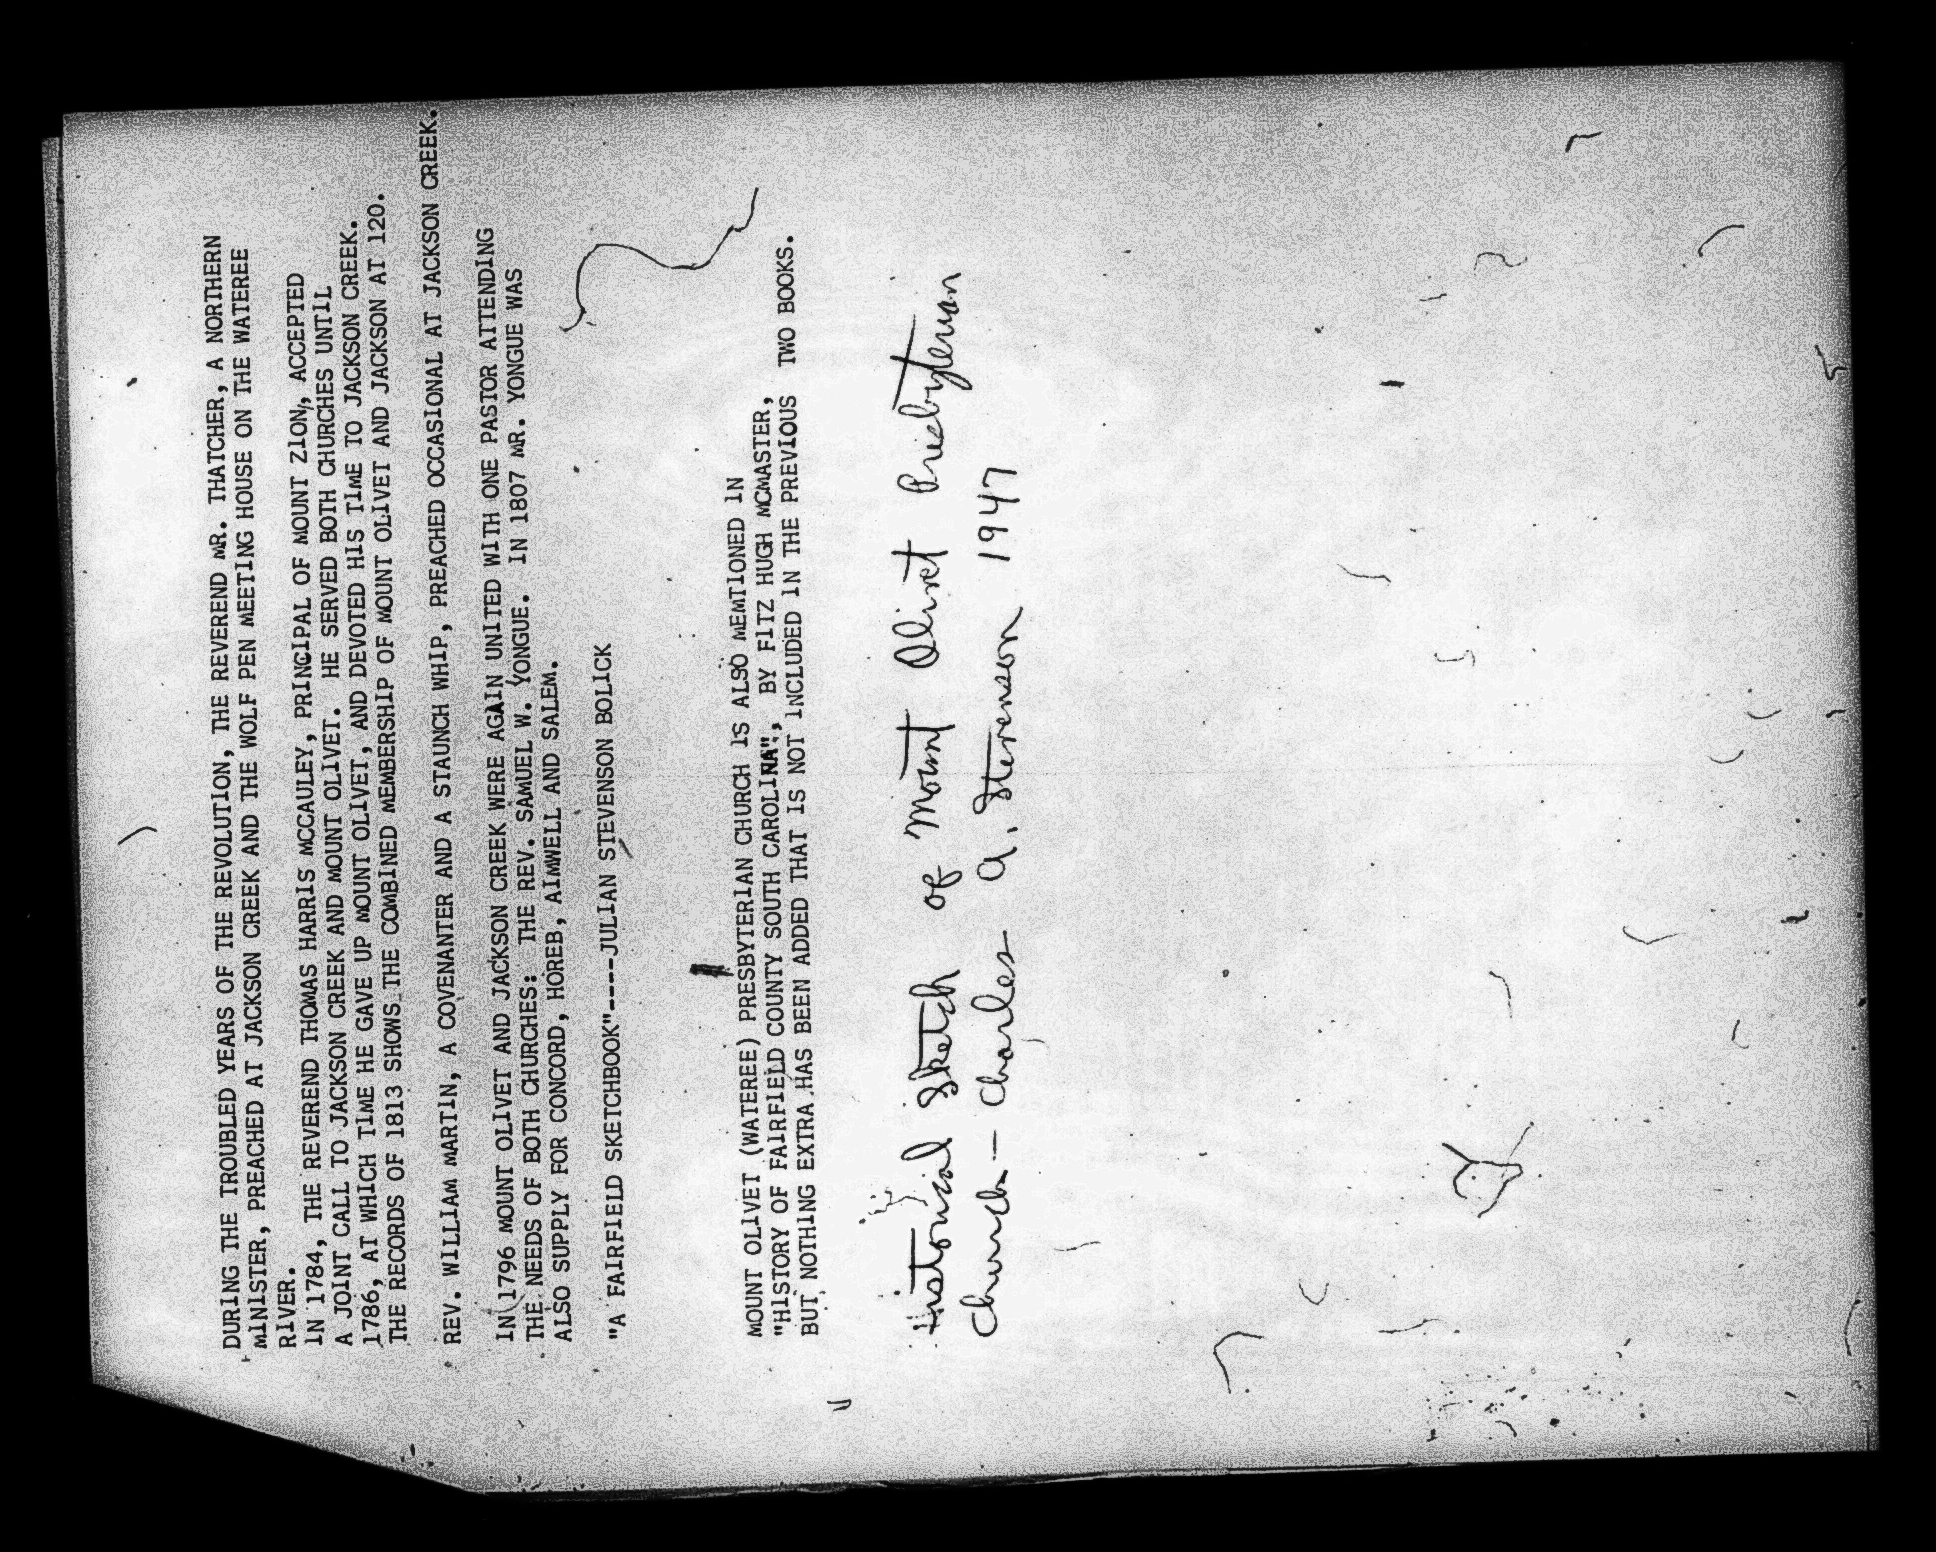 DURING THE TROUBLED YEARS OF THE REVOLUTION, THE REVEREND MR. THATCHER, A NORTHERN
MINISTER, PREACHED AT JACKSON CREEK AND THE WOLF PEN MEETING HOUSE ON THE WATEREE
RIVER.
IN 1784, THE REVEREND THOMAS HARRIS MCCAULEY, PRINCIPAL OF MOUNT ZION, ACCEPTED
A JOINT CALL TO JACKSON CREEK AND MOUNT OLIVET. HE SERVED BOTH CHURCHES UNTIL
1786, AT WHICH TIME HE GAVE UP MOUNT OLIVET, AND DEVOTED HIS TIME TO JACKSON CREEK.
THE RECORDS OF 1813 SHOWS THE COMBINED MEMBERSHIP OF MOUNT OLIVET AND JACKSON AT 120.
REV. WILLIAM MARTIN, A COVENANTER AND A STAUNCH WHIP, PREACHED OCCASIONAL AT JACKSON CREEK.
IN 1796 MOUNT OLIVET AND JACKSON CREEK WERE AGAIN UNITED WITH ONE PASTOR ATTENDING
THE NEEDS OF BOTH CHURCHES: THE REV. SAMUEL W. YONGUE. IN 1807 MR. YONGUE WAS
ALSO SUPPLY FOR CONCORD, HOREB, AIMWELL AND SALEM.
"A FAIRFIELD SKETCHBOOK"----JULIAN STEVENSON BOLICK
MOUNT OLIVET (WATEREE) PRESBYTERIAN CHURCH IS ALSO MEMTIONED IN
"HISTORY OF FAIRFIELD COUNTY SOUTH CAROLINA", BY FITZ HUGH MCMASTER,
BUT NOTHING EXTRA HAS BEEN ADDED THAT IS NOT INCLUDED IN THE PREVIOUS TWO BOOKS.
Historical Sketch of Mount Olivet Presbyterian
Church - Charles A. Stevenson 1947